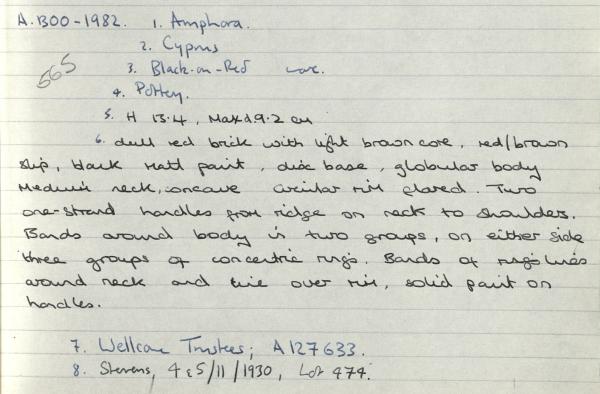 A.300-1982. 1. Amphora.
2. Cyprus
565
3. Black-on-Red ware.
4. Pottery.
5. H 13.4, Maxd.9.2 cm
6. dull red brick with light brown core, red/brown
slip, black matt paint, disc base, globular body
Medium neck, concave circular rim flared. Two
one-strand handles from ridge on neck to shoulders.
Bands around body in two groups, on either side
three groups of concentric rings. Bands of rings
around neck and line over rim, solid paint on
handles.
7. Wellcome Trustees; A127633.
8. Stevens, 4 & 5/11/1930, Lot 474.